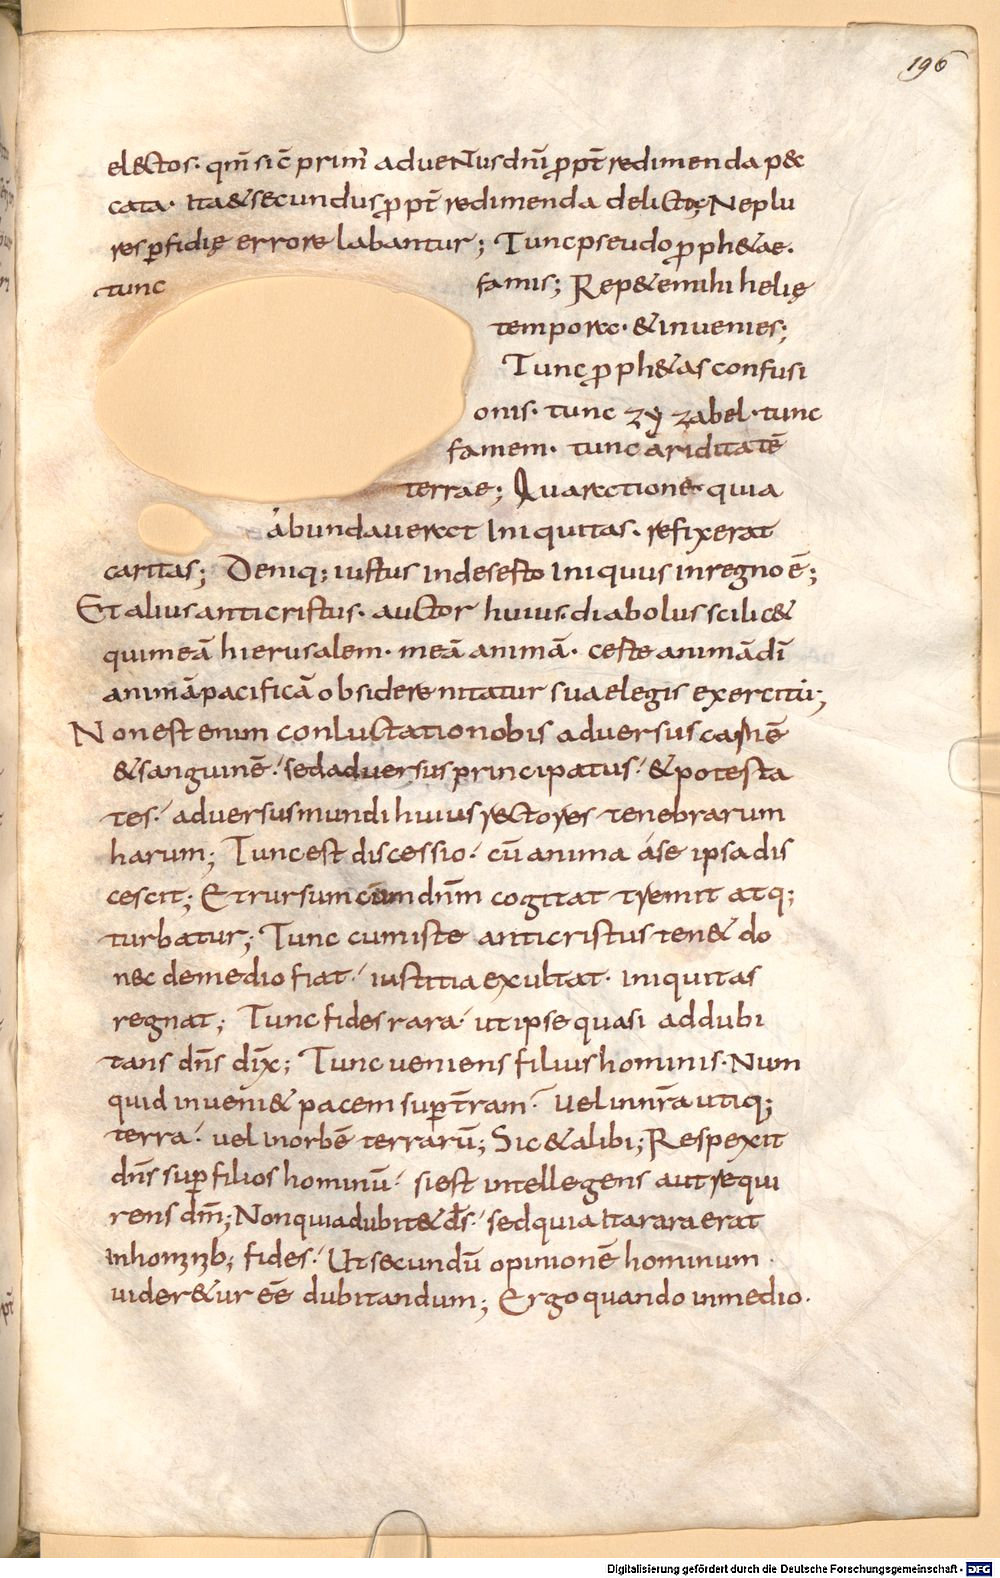 196
el&ctos· qm̄ sic̄ prim' adueNus dn̄i ꝓpt̄ redimenda p&
cata· Ita & secundus ꝓpt̄ redimenda delicta; Neplu
res ꝑfidię errore labantur; Tunc pseudo ꝓph&ae·
tunc famis; Rep&e mihi helię
tempora· & inuenies;
Tunc ꝓph&as confusi
onis· tunc zyzabel· tunc
famem· tunc ariditatē
terrae; Qua ratione· quia
abundauerat Iniquitas· refixerat
caritas; Deniq; iustus indeserto Iniquus in regno ē;
Et alius anticristus· auctor huius· diabolus scilic&
qui meā hierusalem· meā animā· certe animā di
animā pacificā obsidere nitatur suae legis exercitu;
Non est enim conluctatio nobis aduersus carnē
& sanguinē· sed aduersus principatus· & potesta
tes· aduersus mundi huius rectores tenebrarum
harum; Tunc est discessio· cū anima a se ipsa dis
cescit; Et rursum cum dnm̄ cogitat tremit atq;
turbatur; Tunc cum iste anticristus ten& do
nec de medio fiat· iustitia exultat· iniquitas
regnat; Tunc fides rara· ut ipse quasi addubi
tans dn̄s dix̄; Tunc ueniens filius hominis· Num
quid inueni& pacem suꝑ t̄ram· Uel in nr̄a utiq;
terra· uel in orbē terrarū; Sic & alibi; Respexit
dn̄s suꝑ filios hominū· si est intellegens aut requi
rens dm̄; Non quia dubit& d̄s· sed quia Ita rara erat
in hominib; fides· Ut secundū opinionē hominum·
uider&ur eē dubitandum; Ergo quando in medio·
Digitalisierung gefördert durch die Deutsche Forschungsgemeinschaft - DFG